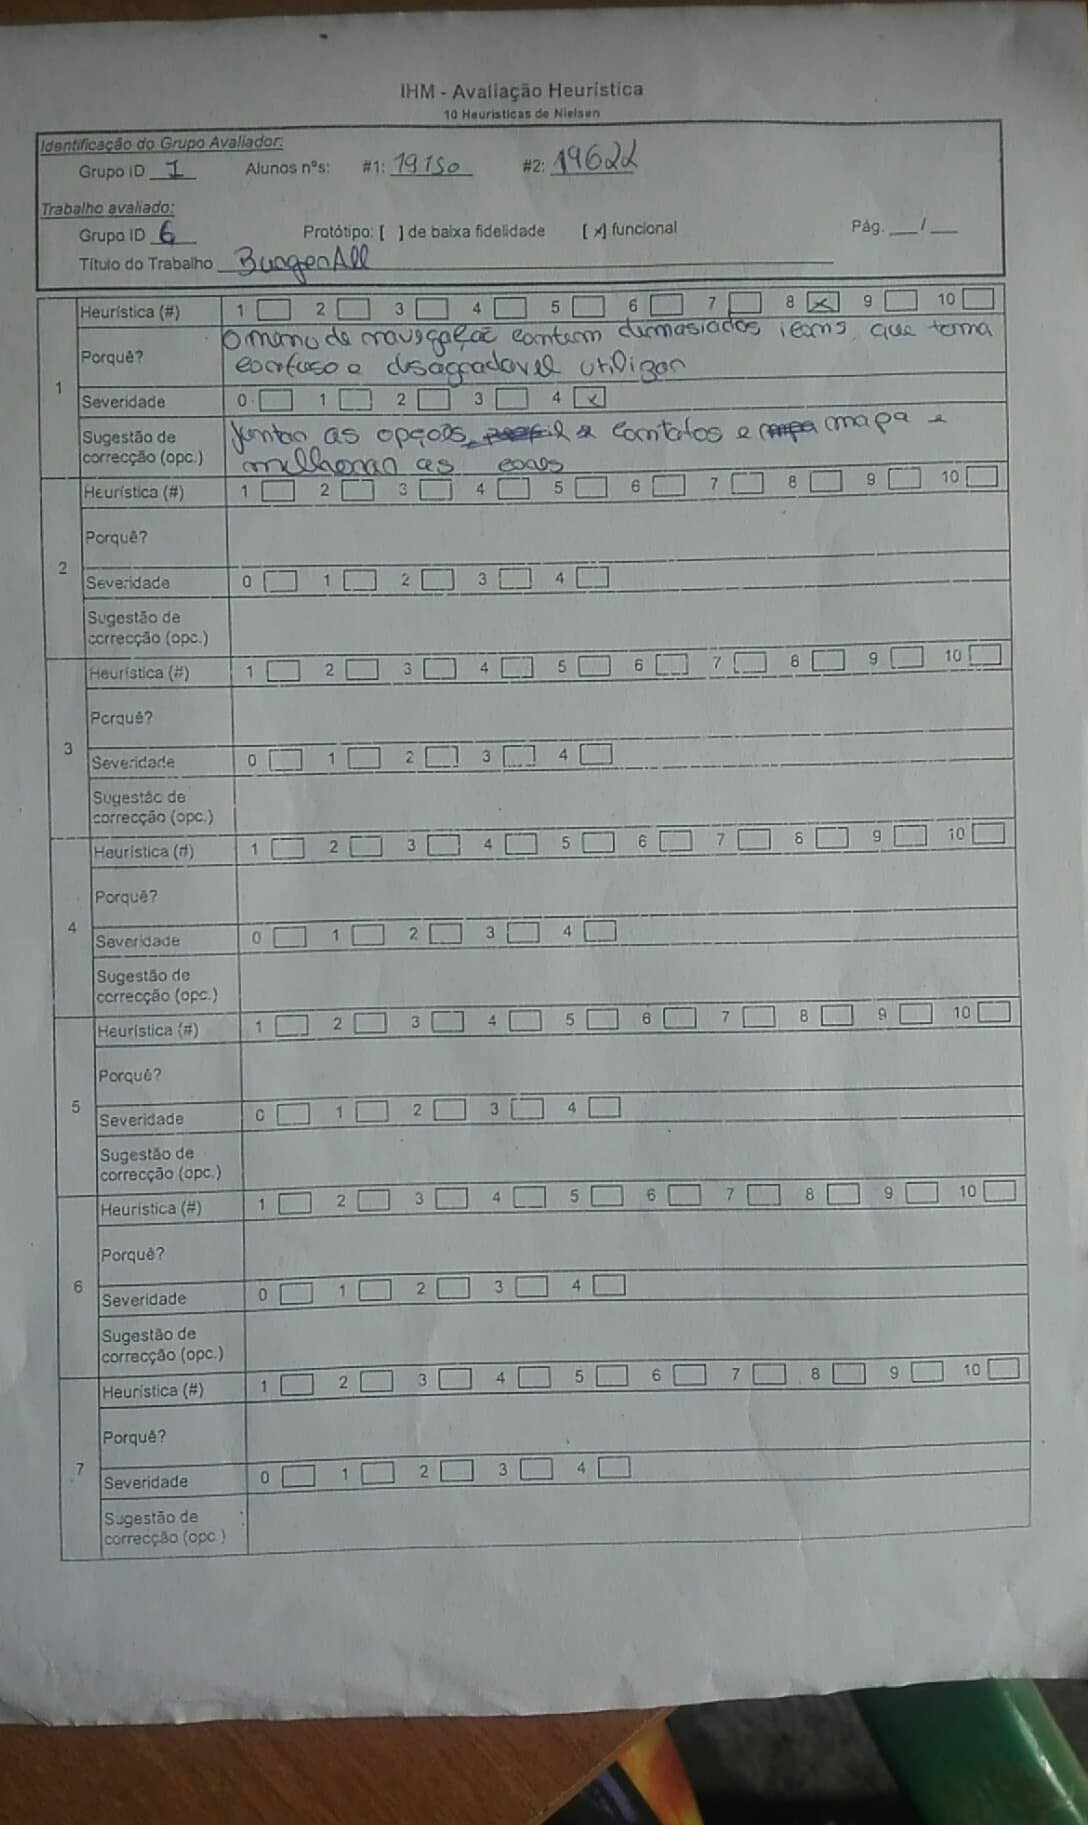 IHM - Avaliação Heurística
10 Heurísticas de Nielsen
Identificação do Grupo Avaliador:
Grupo ID 1 Alunos nºs: #1: 19150 #2: 19622
Trabalho avaliado:
Grupo ID 6 Protótipo: [ ] de baixa fidelidade [x] funcional Pág. ___/___
Título do Trabalho BurgerAll
Heurística (#) 1 2 3 4 5 6 7 8 x 9 10
O menu de navegação contem dumasiados icons, que torna
Porquê?
confuso e desagradavel utilizar
1
Severidade 0 1 2 3 4 x
Sugestão de
correcção (opc.)
juntar as opções, contatos e mapa e
melhorar as cores
Heurística (#) 1 2 3 4 5 6 7 8 9 10
Porquê?
2
Severidade 0 1 2 3 4
Sugestão de
correcção (opc.)
Heurística (#) 1 2 3 4 5 6 7 8 9 10
Porquê?
3
Severidade 0 1 2 3 4
Sugestão de
correcção (opc.)
Heurística (#) 1 2 3 4 5 6 7 8 9 10
Porquê?
4
Severidade 0 1 2 3 4
Sugestão de
correcção (opc.)
Heurística (#) 1 2 3 4 5 6 7 8 9 10
Porquê?
5
Severidade 0 1 2 3 4
Sugestão de
correcção (opc.)
Heurística (#) 1 2 3 4 5 6 7 8 9 10
Porquê?
6
Severidade 0 1 2 3 4
Sugestão de
correcção (opc.)
Heurística (#) 1 2 3 4 5 6 7 8 9 10
Porquê?
7
Severidade 0 1 2 3 4
Sugestão de
correcção (opc.)